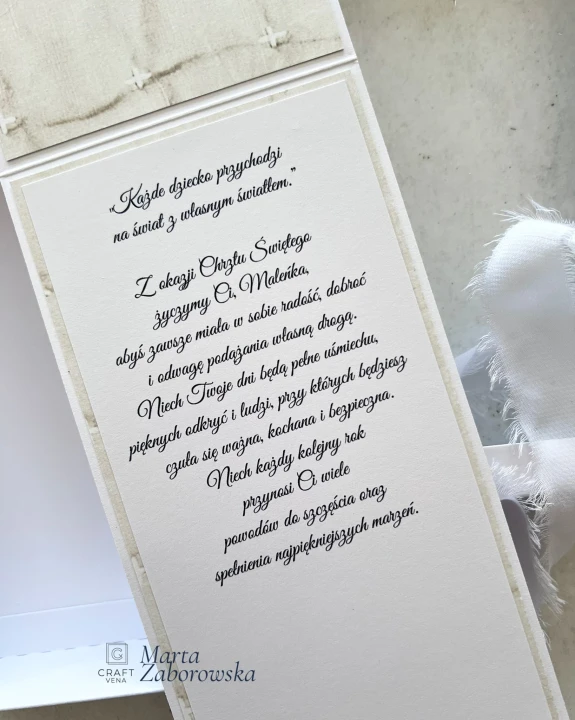 „Każde dziecko przychodzi
na świat z własnym światłem.”
Z okazji Chrztu Świętego
życzymy Ci, Maleńka,
abyś zawsze miała w sobie radość, dobroć
i odwagę podążania własną drogą.
Niech Twoje dni będą pełne uśmiechu,
pięknych odkryć i ludzi, przy których będziesz
czuła się ważna, kochana i bezpieczna.
Niech każdy kolejny rok
przynosi Ci wiele
powodów do szczęścia oraz
spełnienia najpiękniejszych marzeń.
CRAFT
VENA
Marta
Zaborowska